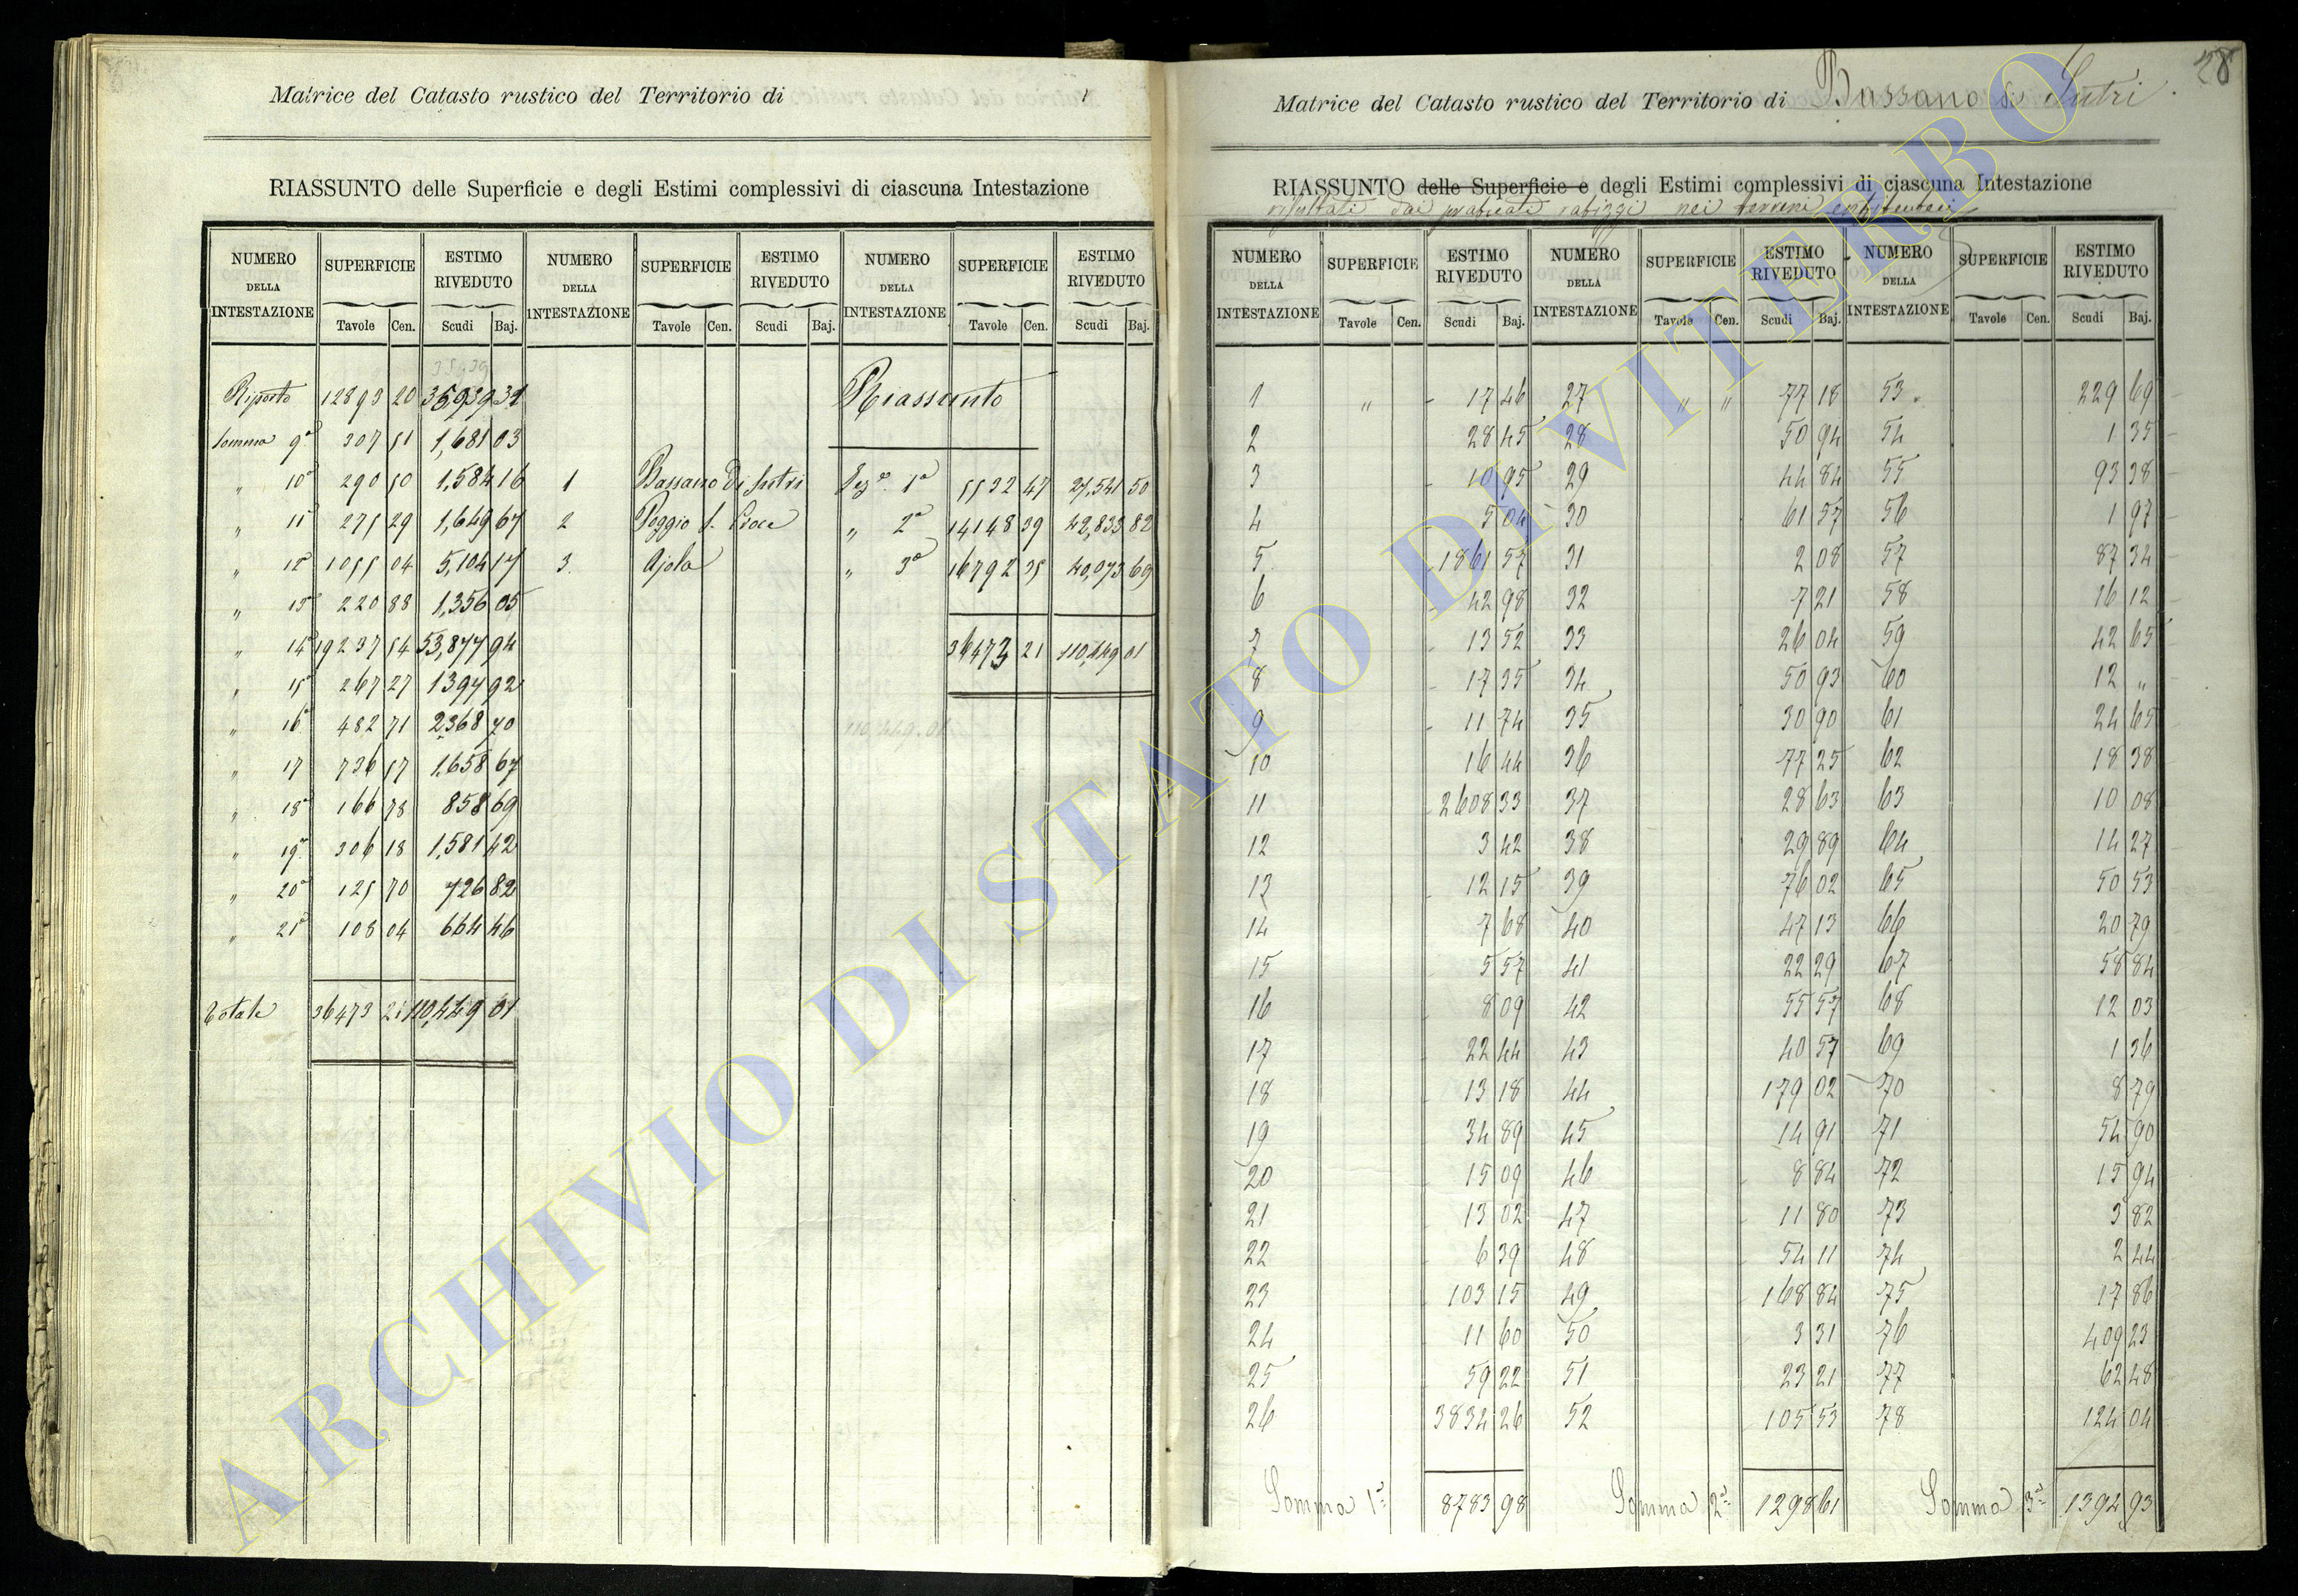 Matrice del Catasto rustico del Territorio di
RIASSUNTO delle Superficie e degli Estimi complessivi di ciascuna Intestazione
NUMERO DELLA INTESTAZIONE SUPERFICIE Tavole Cen. ESTIMO RIVEDUTO Scudi Baj. NUMERO DELLA INTESTAZIONE SUPERFICIE Tavole Cen. ESTIMO RIVEDUTO Scudi Baj. NUMERO DELLA INTESTAZIONE SUPERFICIE Tavole Cen. ESTIMO RIVEDUTO Scudi Baj.
Riporto 12893 20 35939 31 Riassunto
Somma 9a 307 51 1,681 03
" 10a 290 50 1,584 16 1 Bassano di Sutri Sez.e 1a 5532 47 27,541 50
" 11a 275 29 1,649 67 2 Poggio S. Croce " 2a 14148 39 42,833 82
" 12a 1055 04 5,104 17 3. Ajola " 3a 16792 35 40,073 69
" 13a 220 88 1,356 05
" 14a 19237 54 53,877 94 36473 21 110,449 01
" 15a 267 27 1397 92
" 16a 482 71 2368 70
" 17 736 57 1,658 67
" 18a 166 78 858 69
" 19a 306 18 1,581 42
" 20a 125 70 726 82
" 21a 108 04 664 46
Totale 36473 21 110,449 01
28
Matrice del Catasto rustico del Territorio di Bassano di Sutri
RIASSUNTO delle Superficie e degli Estimi complessivi di ciascuna Intestazione
risultati dai praticati rabizzi nei terreni enfiteutici
NUMERO DELLA INTESTAZIONE SUPERFICIE Tavole Cen. ESTIMO RIVEDUTO Scudi Baj. NUMERO DELLA INTESTAZIONE SUPERFICIE Tavole Cen. ESTIMO RIVEDUTO Scudi Baj. NUMERO DELLA INTESTAZIONE SUPERFICIE Tavole Cen. ESTIMO RIVEDUTO Scudi Baj.
1 " 17 46 27 " " 77 18 53 229 69
2 28 45 28 50 94 54 1 35
3 10 95 29 44 84 55 93 38
4 5 04 30 61 57 56 1 97
5 1861 57 31 2 08 57 87 34
6 42 98 32 7 21 58 16 12
7 13 52 33 26 04 59 42 65
8 17 35 34 50 93 60 12 "
9 11 74 35 30 90 61 24 65
10 16 44 36 77 25 62 18 38
11 2608 33 37 28 63 63 10 08
12 3 42 38 29 89 64 14 27
13 12 15 39 76 02 65 50 53
14 7 68 40 47 13 66 20 79
15 5 57 41 22 29 67 58 84
16 8 09 42 55 57 68 12 03
17 22 44 43 40 57 69 1 36
18 13 18 44 179 02 70 8 79
19 34 89 45 14 91 71 54 90
20 15 09 46 8 84 72 15 94
21 13 02 47 11 80 73 3 82
22 6 39 48 54 11 74 2 44
23 103 15 49 168 84 75 17 86
24 11 60 50 3 31 76 409 23
25 59 22 51 23 21 77 62 48
26 3834 26 52 105 53 78 124 04
Somma 1a 8783 98 Somma 2a 1298 61 Somma 3a 1394 93
ARCHIVIO DI STATO DI VITERBO